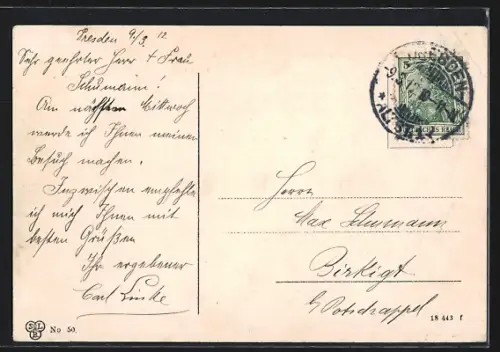 Dresden 9/3. 12
Sehr geehrter Herr + Frau
Schumann!
Am nächsten Mittwoch
werde ich Ihnen meinen
Besuch machen.
Inzwischen empfehle
ich mich Ihnen mit
besten Grüßen
Ihr ergebener
Carl Linke
No 50.
DRESDEN
* ALTST.
Herrn
Max Schumann
Birkigt
b/Potschappel
18 443 f